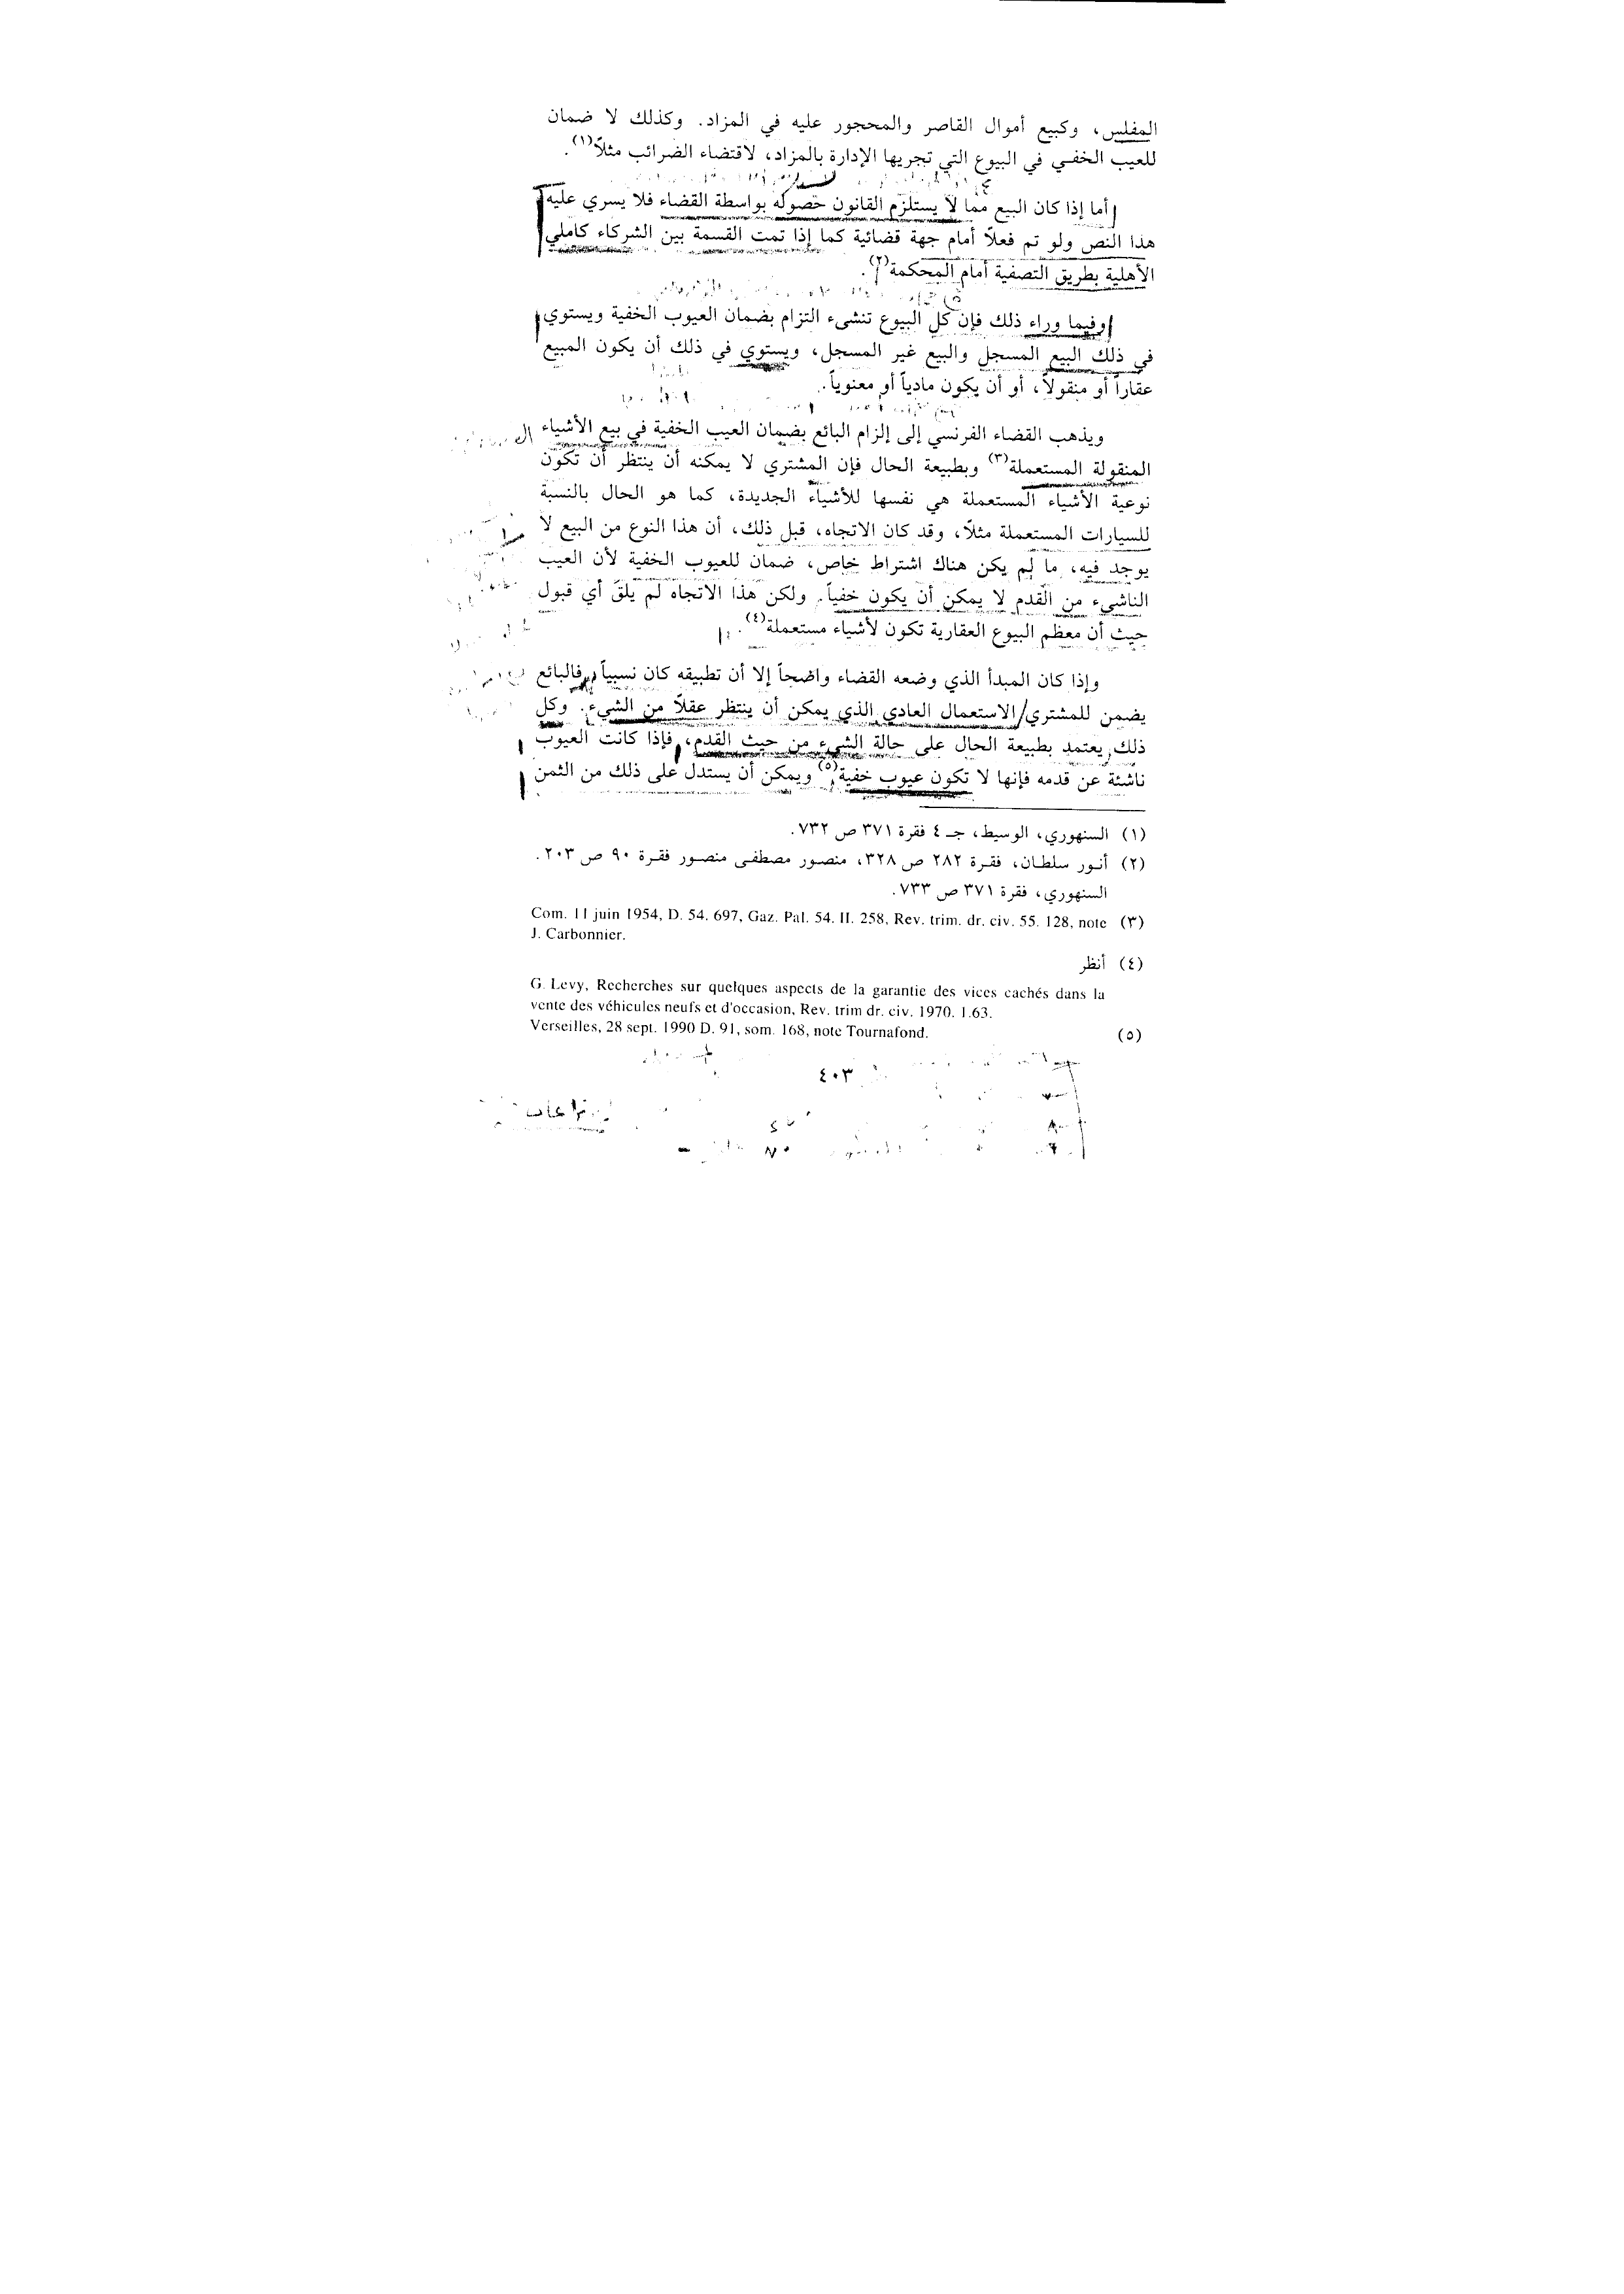 المفلس، وكبيع أموال القاصر والمحجور عليه في المزاد. وكذلك لا ضمان
للعيب الخفي في البيوع التي تجريها الإدارة بالمزاد، لاقتضاء الضرائب مثلاً(١).
أما إذا كان البيع مما لا يستلزم القانون حصوله بواسطة القضاء فلا يسري عليه
هذا النص ولو تم فعلاً أمام جهة قضائية كما إذا تمت القسمة بين الشركاء كاملي
الأهلية بطريق التصفية أمام المحكمة(٢).
وفيما وراء ذلك فإن كل البيوع تنشىء التزام بضمان العيوب الخفية ويستوي
في ذلك البيع المسجل والبيع غير المسجل، ويستوي في ذلك أن يكون المبيع
عقاراً أو منقولاً، أو أن يكون مادياً أو معنوياً.
ويذهب القضاء الفرنسي إلى إلزام البائع بضمان العيب الخفية في بيع الأشياء
المنقولة المستعملة(٣) وبطبيعة الحال فإن المشتري لا يمكنه أن ينتظر أن تكون
نوعية الأشياء المستعملة هي نفسها للأشياء الجديدة، كما هو الحال بالنسبة
للسيارات المستعملة مثلاً، وقد كان الاتجاه، قبل ذلك، أن هذا النوع من البيع لا
يوجد فيه، ما لم يكن هناك اشتراط خاص، ضمان للعيوب الخفية لأن العيب
الناشيء من القدم لا يمكن أن يكون خفياً. ولكن هذا الاتجاه لم يلق أي قبول
حيث أن معظم البيوع العقارية تكون لأشياء مستعملة(٤).
وإذا كان المبدأ الذي وضعه القضاء واضحاً إلا أن تطبيقه كان نسبياً، فالبائع
يضمن للمشتري الاستعمال العادي الذي يمكن أن ينتظر عقلاً من الشيء. وكل
ذلك يعتمد بطبيعة الحال على حالة الشيء من حيث القدم، فإذا كانت العيوب
ناشئة عن قدمه فإنها لا تكون عيوب خفية(٥) ويمكن أن يستدل على ذلك من الثمن
(١) السنهوري، الوسيط، جـ ٤ فقرة ٣٧١ ص ٧٣٢.
(٢) أنور سلطان، فقرة ٢٨٢ ص ٣٢٨، منصور مصطفى منصور فقرة ٩٠ ص ٢٠٣.
السنهوري، فقرة ٣٧١ ص ٧٣٣.
(٣) Com. 11 juin 1954, D. 54. 697, Gaz. Pal. 54. II. 258, Rev. trim. dr. civ. 55. 128, note
J. Carbonnier.
(٤) أنظر
G. Levy, Recherches sur quelques aspects de la garantie des vices cachés dans la
vente des véhicules neufs et d'occasion, Rev. trim dr. civ. 1970. 1.63.
(٥) Verseilles, 28 sept. 1990 D. 91, som. 168, note Tournafond.
٤٠٣